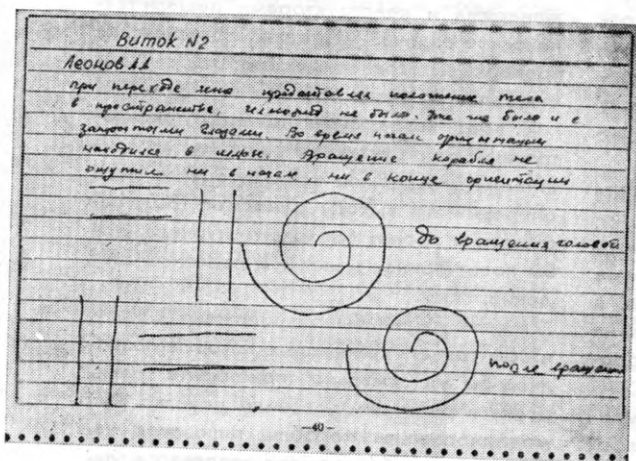 Виток N2
Леонов АА
при переходе ясно представлял положение тела
в пространстве, иллюзий не было. же было и с
закрытыми глазами. Во время ориентации
находился в Вращение корабля не
ощутил ни в начале, ни в конце ориентации
до вращения головой
после вращения
-40-